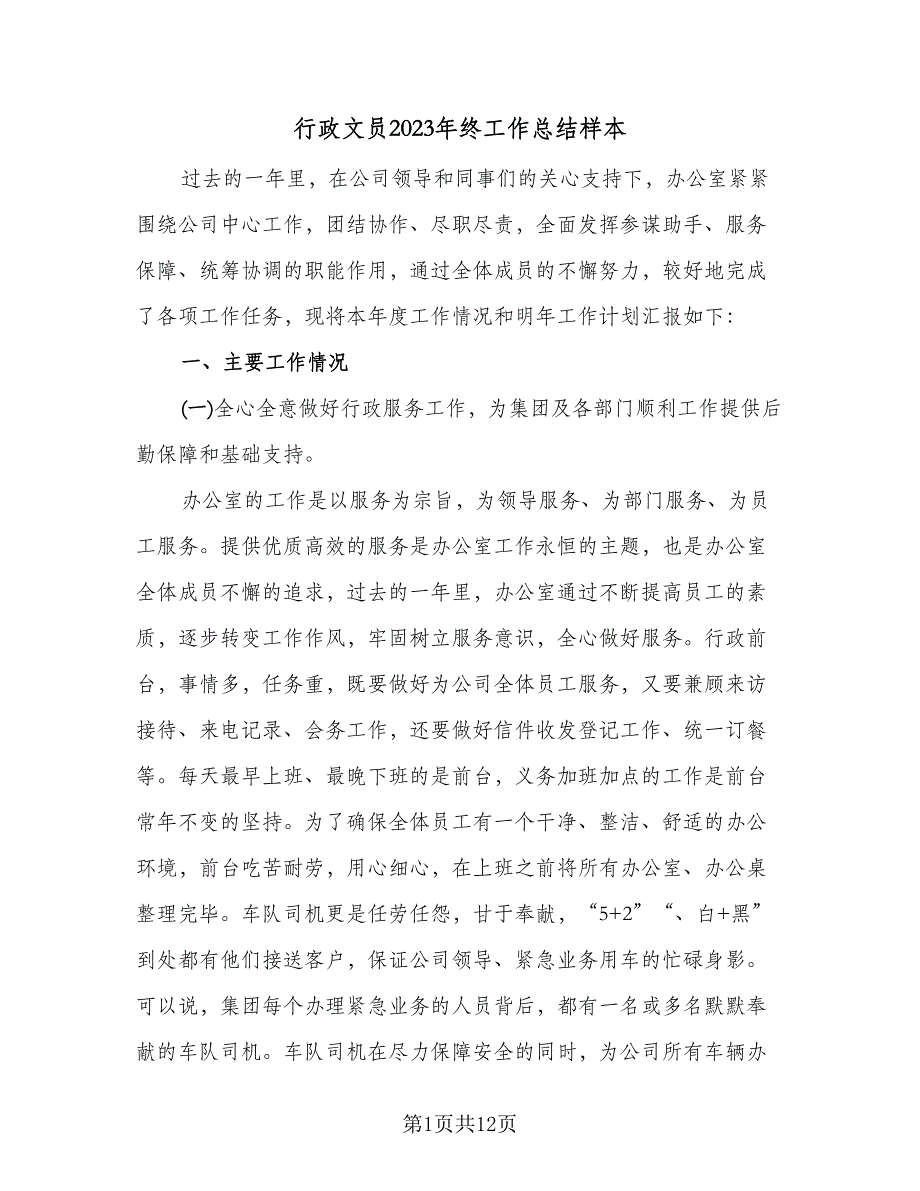 行政文员2023年终工作总结样本
过去的一年里，在公司领导和同事们的关心支持下，办公室紧紧
围绕公司中心工作，团结协作、尽职尽责，全面发挥参谋助手、服务
保障、统筹协调的职能作用，通过全体成员的不懈努力，较好地完成
了各项工作任务，现将本年度工作情况和明年工作计划汇报如下：
一、主要工作情况
(一)全心全意做好行政服务工作，为集团及各部门顺利工作提供后
勤保障和基础支持。
办公室的工作是以服务为宗旨，为领导服务、为部门服务、为员
工服务。提供优质高效的服务是办公室工作永恒的主题，也是办公室
全体成员不懈的追求，过去的一年里，办公室通过不断提高员工的素
质，逐步转变工作作风，牢固树立服务意识，全心做好服务。行政前
台，事情多，任务重，既要做好为公司全体员工服务，又要兼顾来访
接待、来电记录、会务工作，还要做好信件收发登记工作、统一订餐
等。每天最早上班、最晚下班的是前台，义务加班加点的工作是前台
常年不变的坚持。为了确保全体员工有一个干净、整洁、舒适的办公
环境，前台吃苦耐劳，用心细心，在上班之前将所有办公室、办公桌
整理完毕。车队司机更是任劳任怨，甘于奉献，“5+2”“、白+黑”
到处都有他们接送客户，保证公司领导、紧急业务用车的忙碌身影。
可以说，集团每个办理紧急业务的人员背后，都有一名或多名默默奉
献的车队司机。车队司机在尽力保障安全的同时，为公司所有车辆办
第1页共12页